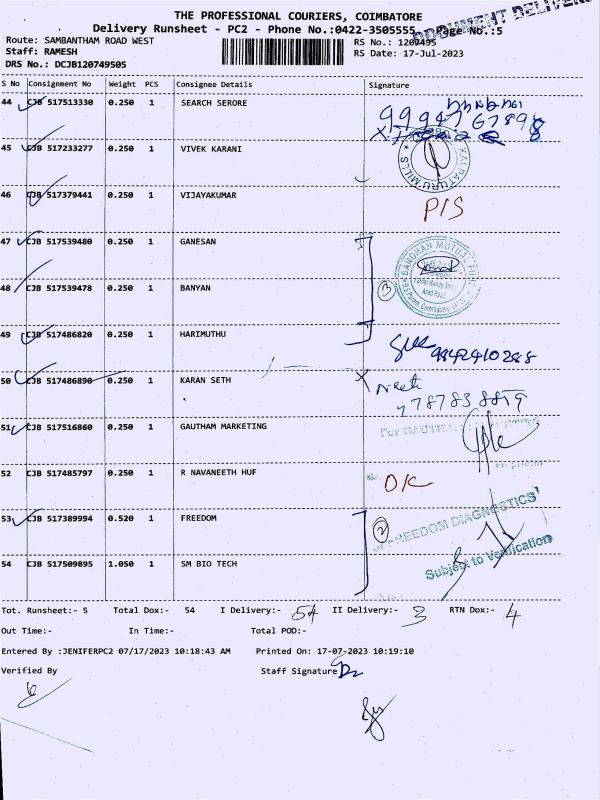 THE PROFESSIONAL COURIERS, COIMBATORE
Delivery Runsheet - PC2 - Phone No.:0422-3505555 Page No.:5
DOCUMENT
Route: SAMBANTHAM ROAD WEST
RS No.: 1207495
Staff: RAMESH
RS Date: 17-Jul-2023
DRS No.: DCJB120749505
S No Consignment No Weight PCS Consignee Details Signature
44 CJB 517513330 0.250 1 SEARCH SERORE
45 CJB 517233277 0.250 1 VIVEK KARANI
46 CJB 517379441 0.250 1 VIJAYAKUMAR P/S
47 CJB 517539480 0.250 1 GANESAN
BANDHAN MUTUAL
48 CJB 517539478 0.250 1 BANYAN 3
49 CJB 517486820 0.250 1 HARIMUTHU
9842910288
50 CJB 517486890 0.250 1 KARAN SETH
51 CJB 517516860 0.250 1 GAUTHAM MARKETING
For
52 CJB 517485797 0.250 1 R NAVANEETH HUF OK
53 CJB 517389994 0.520 1 FREEDOM 2
FREEDOM DIAGNOSTICS
54 CJB 517509895 1.050 1 SM BIO TECH
Subject to Verification
Tot. Runsheet:- 5 Total Dox:- 54 I Delivery:- 54 II Delivery:- 3 RTN Dox:- 4
Out Time:- In Time:- Total POD:-
Entered By :JENIFERPC2 07/17/2023 10:18:43 AM Printed On: 17-07-2023 10:19:10
Verified By Staff Signature